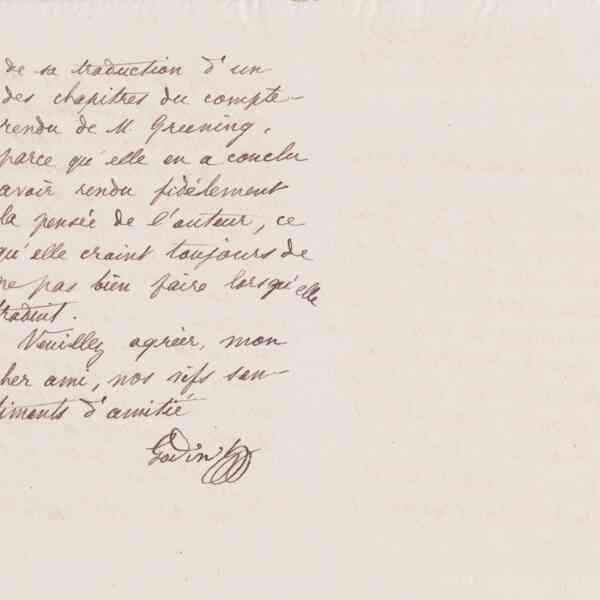 de sa traduction d'un
des chapitres du compte-
rendu de M Greening,
parce qu'elle en a conclu
avoir rendu fidèlement
la pensée de l'auteur, ce
qu'elle craint toujours de
ne pas bien faire lorsqu'elle
traduit.
Veuillez agréer, mon
cher ami, nos vifs sen-
timents d'amitié
Godin